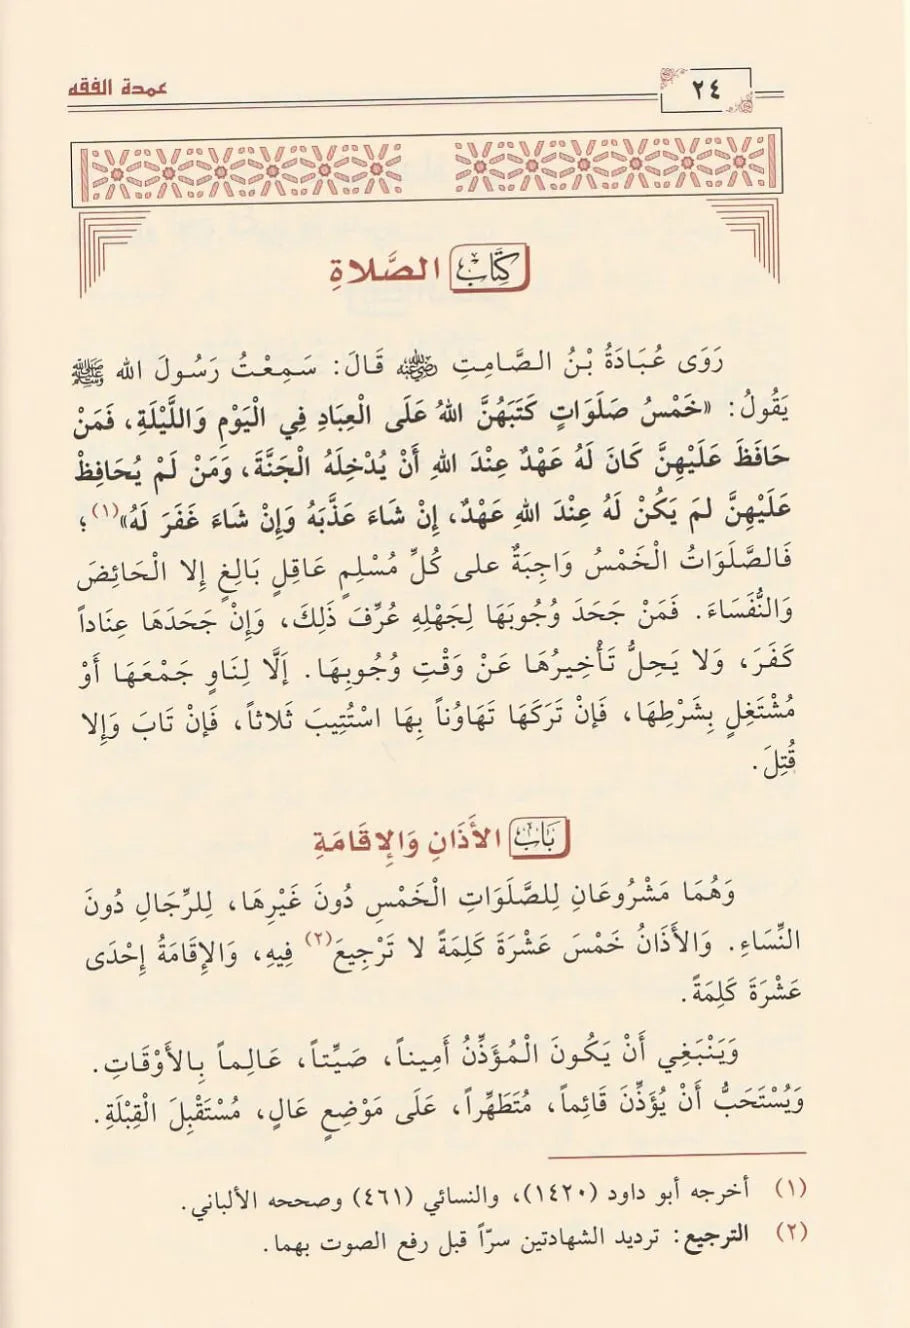 عمدة الفقه
٢٤
كِتَابُ الصَّلاةِ
رَوَى عُبَادَةُ بْنُ الصَّامِتِ رضي الله عنه قَالَ: سَمِعْتُ رَسُولَ الله ﷺ
يَقُولُ: «خَمْسُ صَلَوَاتٍ كَتَبَهُنَّ اللهُ عَلَى الْعِبَادِ فِي الْيَوْمِ وَاللَّيْلَةِ، فَمَنْ
حَافَظَ عَلَيْهِنَّ كَانَ لَهُ عَهْدٌ عِنْدَ اللهِ أَنْ يُدْخِلَهُ الْجَنَّةَ، وَمَنْ لَمْ يُحَافِظْ
عَلَيْهِنَّ لمَ يَكُنْ لَهُ عِنْدَ اللهِ عَهْدٌ، إِنْ شَاءَ عَذَّبَهُ وَإِنْ شَاءَ غَفَرَ لَهُ»(١)؛
فَالصَّلَوَاتُ الْخَمْسُ وَاجِبَةٌ على كُلِّ مُسْلِمٍ عَاقِلٍ بَالِغٍ إِلا الْحَائِضَ
وَالنُّفَسَاءَ. فَمَنْ جَحَدَ وُجُوبَهَا لِجَهْلِهِ عُرِّفَ ذَلِكَ، وَإِنْ جَحَدَهَا عِنَاداً
كَفَرَ، وَلا يَحِلُّ تَأْخِيرُهَا عَنْ وَقْتِ وُجُوبِهَا. إَلَّا لِنَاوٍ جَمْعَهَا أَوْ
مُشْتَغِلٍ بِشَرْطِهَا، فَإِنْ تَرَكَهَا تَهَاوُناً بِهَا اسْتُتِيبَ ثَلاثاً، فَإِنْ تَابَ وَإِلا
قُتِلَ.
بَابُ الأَذَانِ وَالإِقَامَةِ
وَهُمَا مَشْرُوعَانِ لِلصَّلَوَاتِ الْخَمْسِ دُونَ غَيْرِهَا، لِلرِّجَالِ دُونَ
النِّسَاءِ. وَالأَذَانُ خَمْسَ عَشْرَةَ كَلِمَةً لا تَرْجِيعَ(٢) فِيهِ، وَالإِقَامَةُ إِحْدَى
عَشْرَةَ كَلِمَةً.
وَيَنْبَغِي أَنْ يَكُونَ الْمُؤَذِّنُ أَمِيناً، صَيِّتاً، عَالِماً بِالأَوْقَاتِ.
وَيُسْتَحَبُّ أَنْ يُؤَذِّنَ قَائِماً، مُتَطَهِّراً، عَلَى مَوْضِعٍ عَالٍ، مُسْتَقْبِلَ الْقِبْلَةِ.
(١) أخرجه أبو داود (١٤٢٠)، والنسائي (٤٦١) وصححه الألباني.
(٢) الترجيع: ترديد الشهادتين سرّاً قبل رفع الصوت بهما.